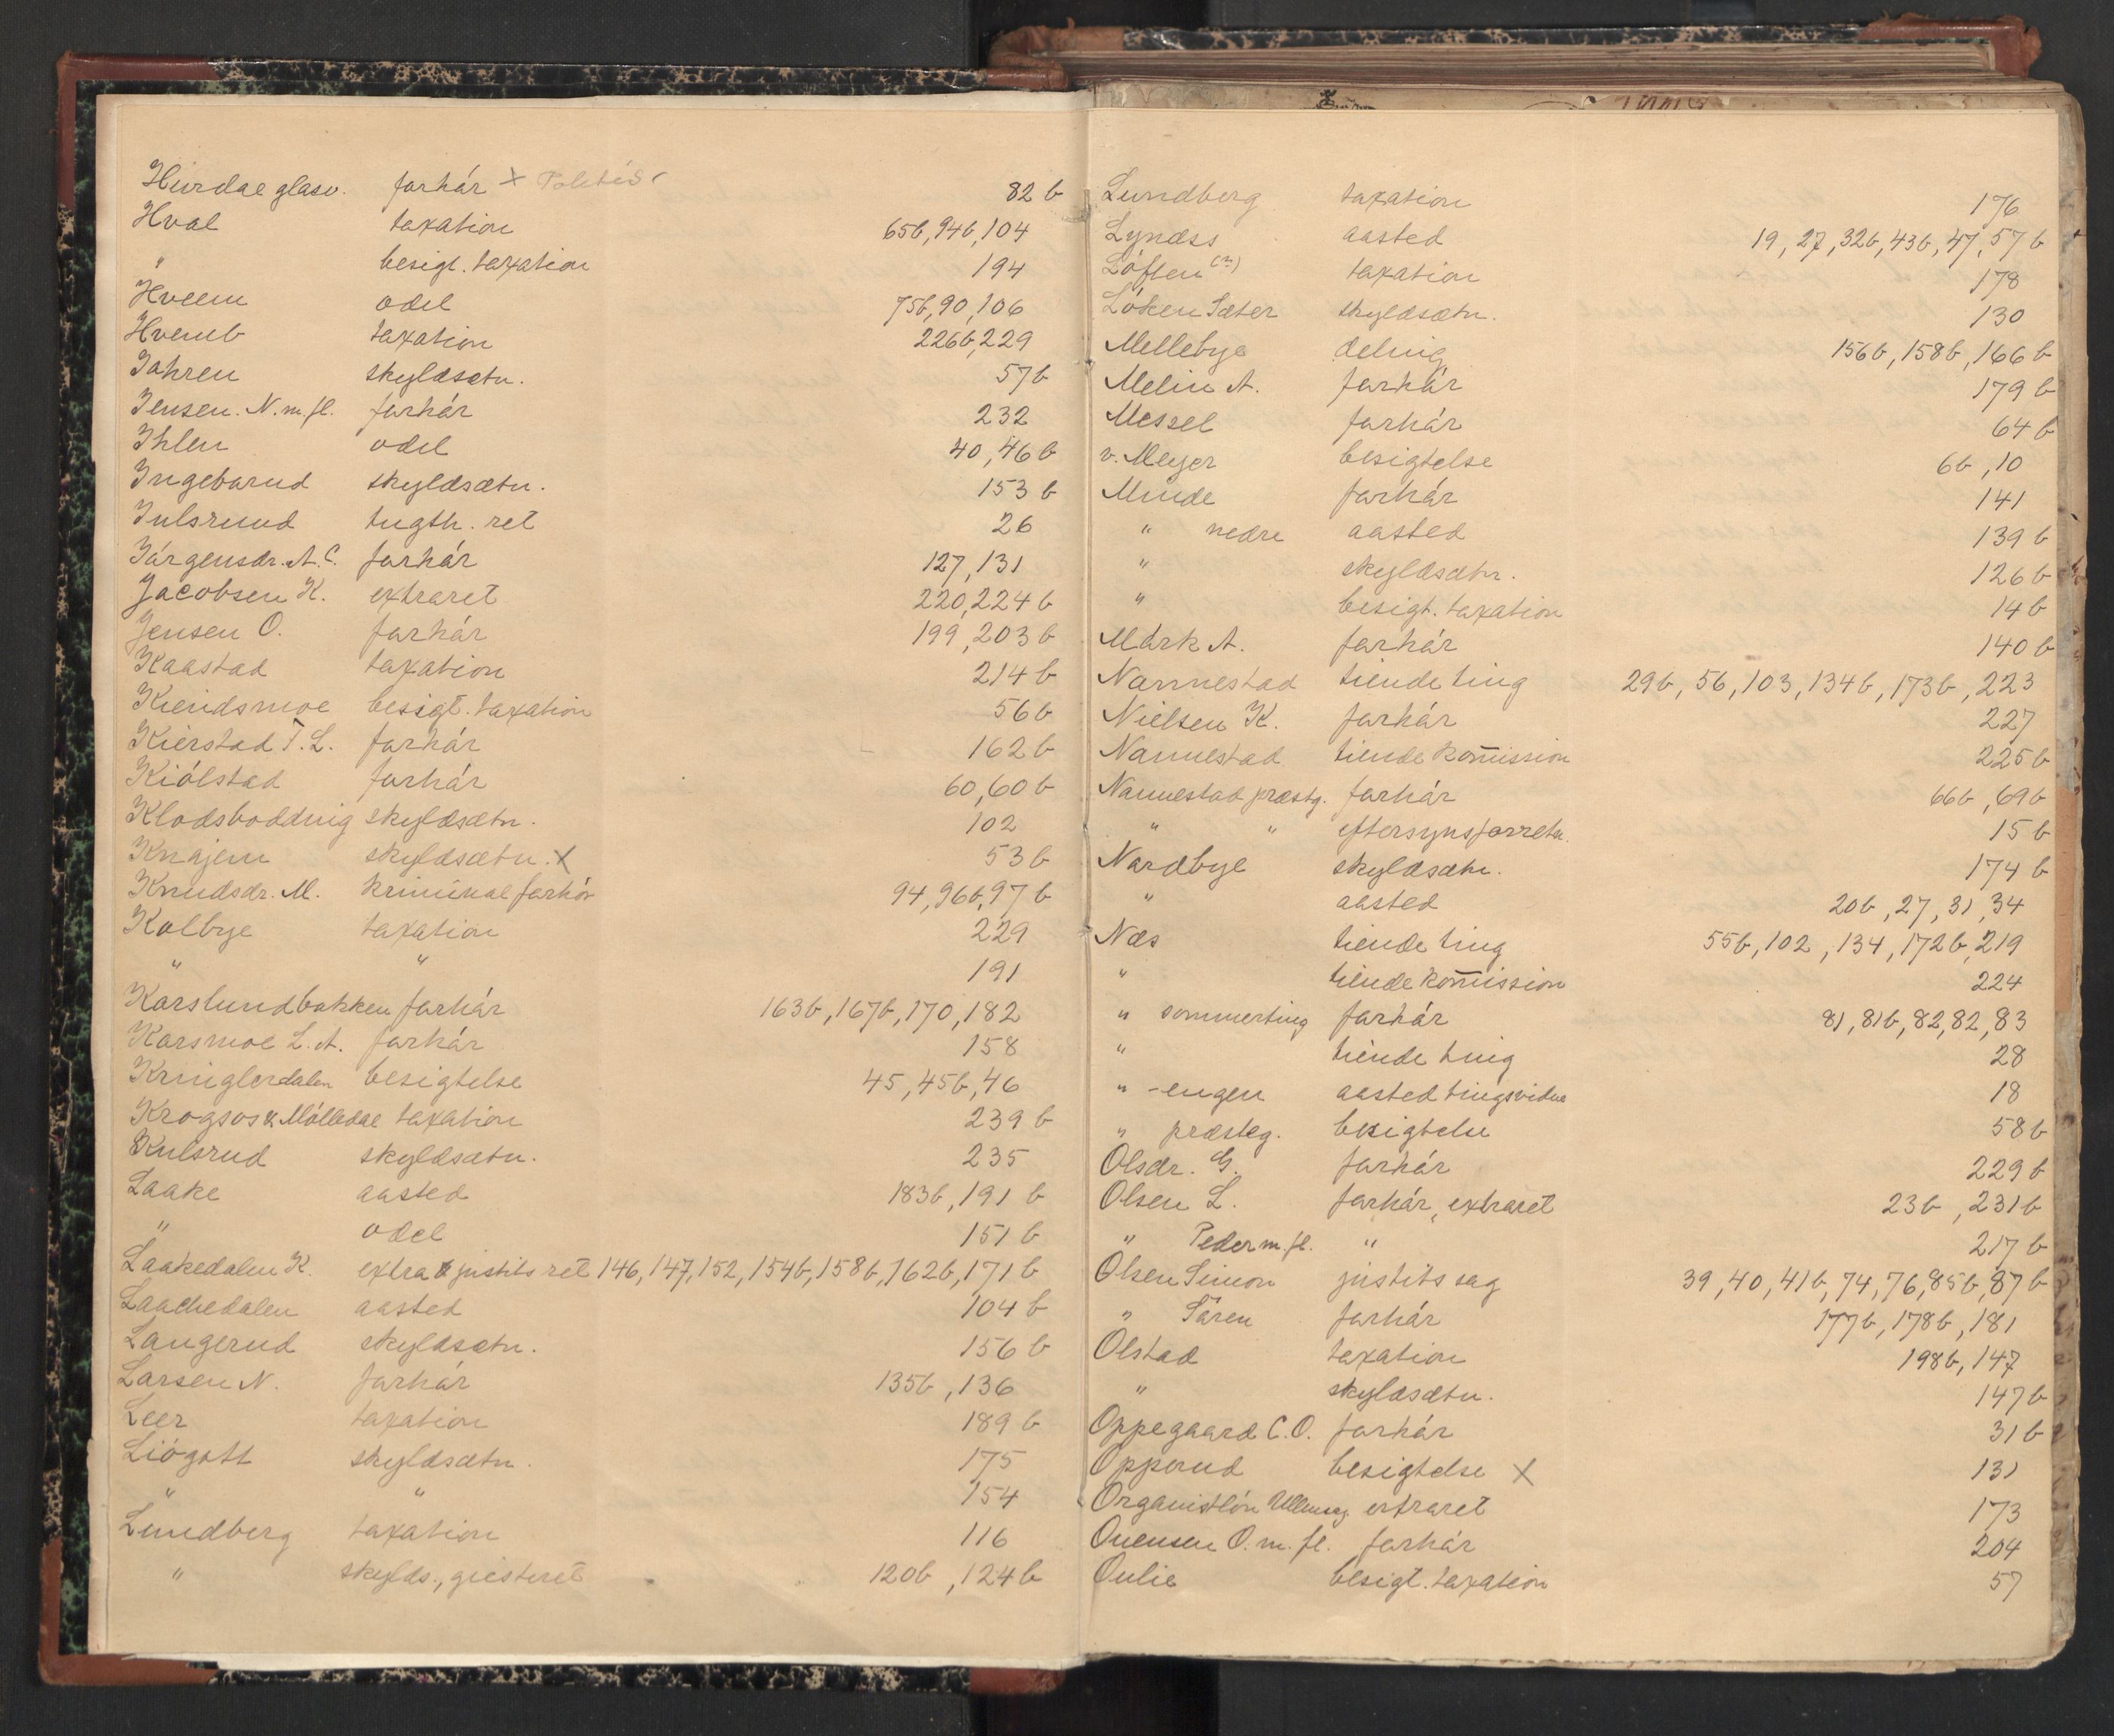 Hurdal glasv. forhór × Politis
82 b
Hval taxation 65b, 94b, 104
" besigt. taxation 194
Hveem odel 75b, 90, 106
Hvemb taxation 226b, 229
Jahren skyldsætn. 57 b
Jensen. N. m. fl. forhór 232
Ihlen odel 40, 46 b
Ingebarud skyldsætn. 153 b
Julsrud tugth. ret 26
Jórgensdr. A. C. forhór 127, 131
Jacobsen K. extraret 220, 224 b
Jensen O. forhór 199, 203 b
Kaastad taxation 214 b
Kiendsmoe besigt. taxation 56 b
Kierstad T. L. forhór 162 b
Kiólstad forhór 60, 60 b
Klodsbodding skyldsætn. 102
Knajem skyldsætn. × 53 b
Knudsdr. M. kriminal forhór 94, 96b, 97 b
Kolbye taxation 229
" " 191
Korslundbakken forhór 163b, 167b, 170, 182
Korsmoe L. A. forhór 158
Kringlerdalen besigtelse 45, 45b, 46
Krogsos & Mólledal taxation 239 b
Kulsrud skyldsætn. 235
Laake aasted 183b, 191 b
" odel 151 b
Laakedalen K. extra & justits ret 146, 147, 152, 154b, 158b, 162b, 171 b
Laachedalen aasted 104 b
Langerud skyldsætn. 156 b
Larsen N. forhór 135b, 136
Leer taxation 189 b
Liógott skyldsætn. 175
" " 154
Lundberg taxation 116
" skylds., giesteret 120b, 124 b
Lundberg taxation 176
Lyndss aasted 19, 27, 32b, 43b, 47, 57 b
Lóften (?) taxation 178
Lóken Sæter skyldsætn. 130
Mellebye deling 156b, 158b, 166 b
Melin A. forhór 179 b
Messel forhór 64 b
v. Meyer besigtelse 6b, 10
Minde forhór 141
" nedre aasted 139 b
" skyldsætn. 126 b
" besigt. taxation 14 b
Mórk A. forhór 140 b
Nannestad tiende ting 29b, 56, 103, 134b, 173b, 223
Nielsen K. forhór 227
Nannestad tiende kom̅ission 225 b
Nannestad præstg. forhór 66b, 69 b
" " eftersynsforretn. 15 b
Nordbye skyldsætn. 174 b
" aasted 20b, 27, 31, 34
Næs tiende ting 55b, 102, 134, 172b, 219
" tiende kom̅ission 224
" sommerting forhór 81, 81b, 82, 82, 83
" tiende ting 28
" -engen aasted tingsvidne 18
" præsteg. besigtelse 58 b
Olsdr. G. forhór 229 b
Olsen L. forhór, extraret 23b, 231 b
" Peder m. fl. " 217 b
Olsen Simon justits sag 39, 40, 41b, 74, 76, 85b, 87 b
" Sóren forhór 177b, 178b, 181
Olstad taxation 198b, 147
" skyldsætn. 147 b
Oppegaard C. O. forhór 31 b
Opperud besigtelse × 131
Organistlón extraret 173
Ouensen O. m. fl. forhór 204
Oulie besigt. taxation 57